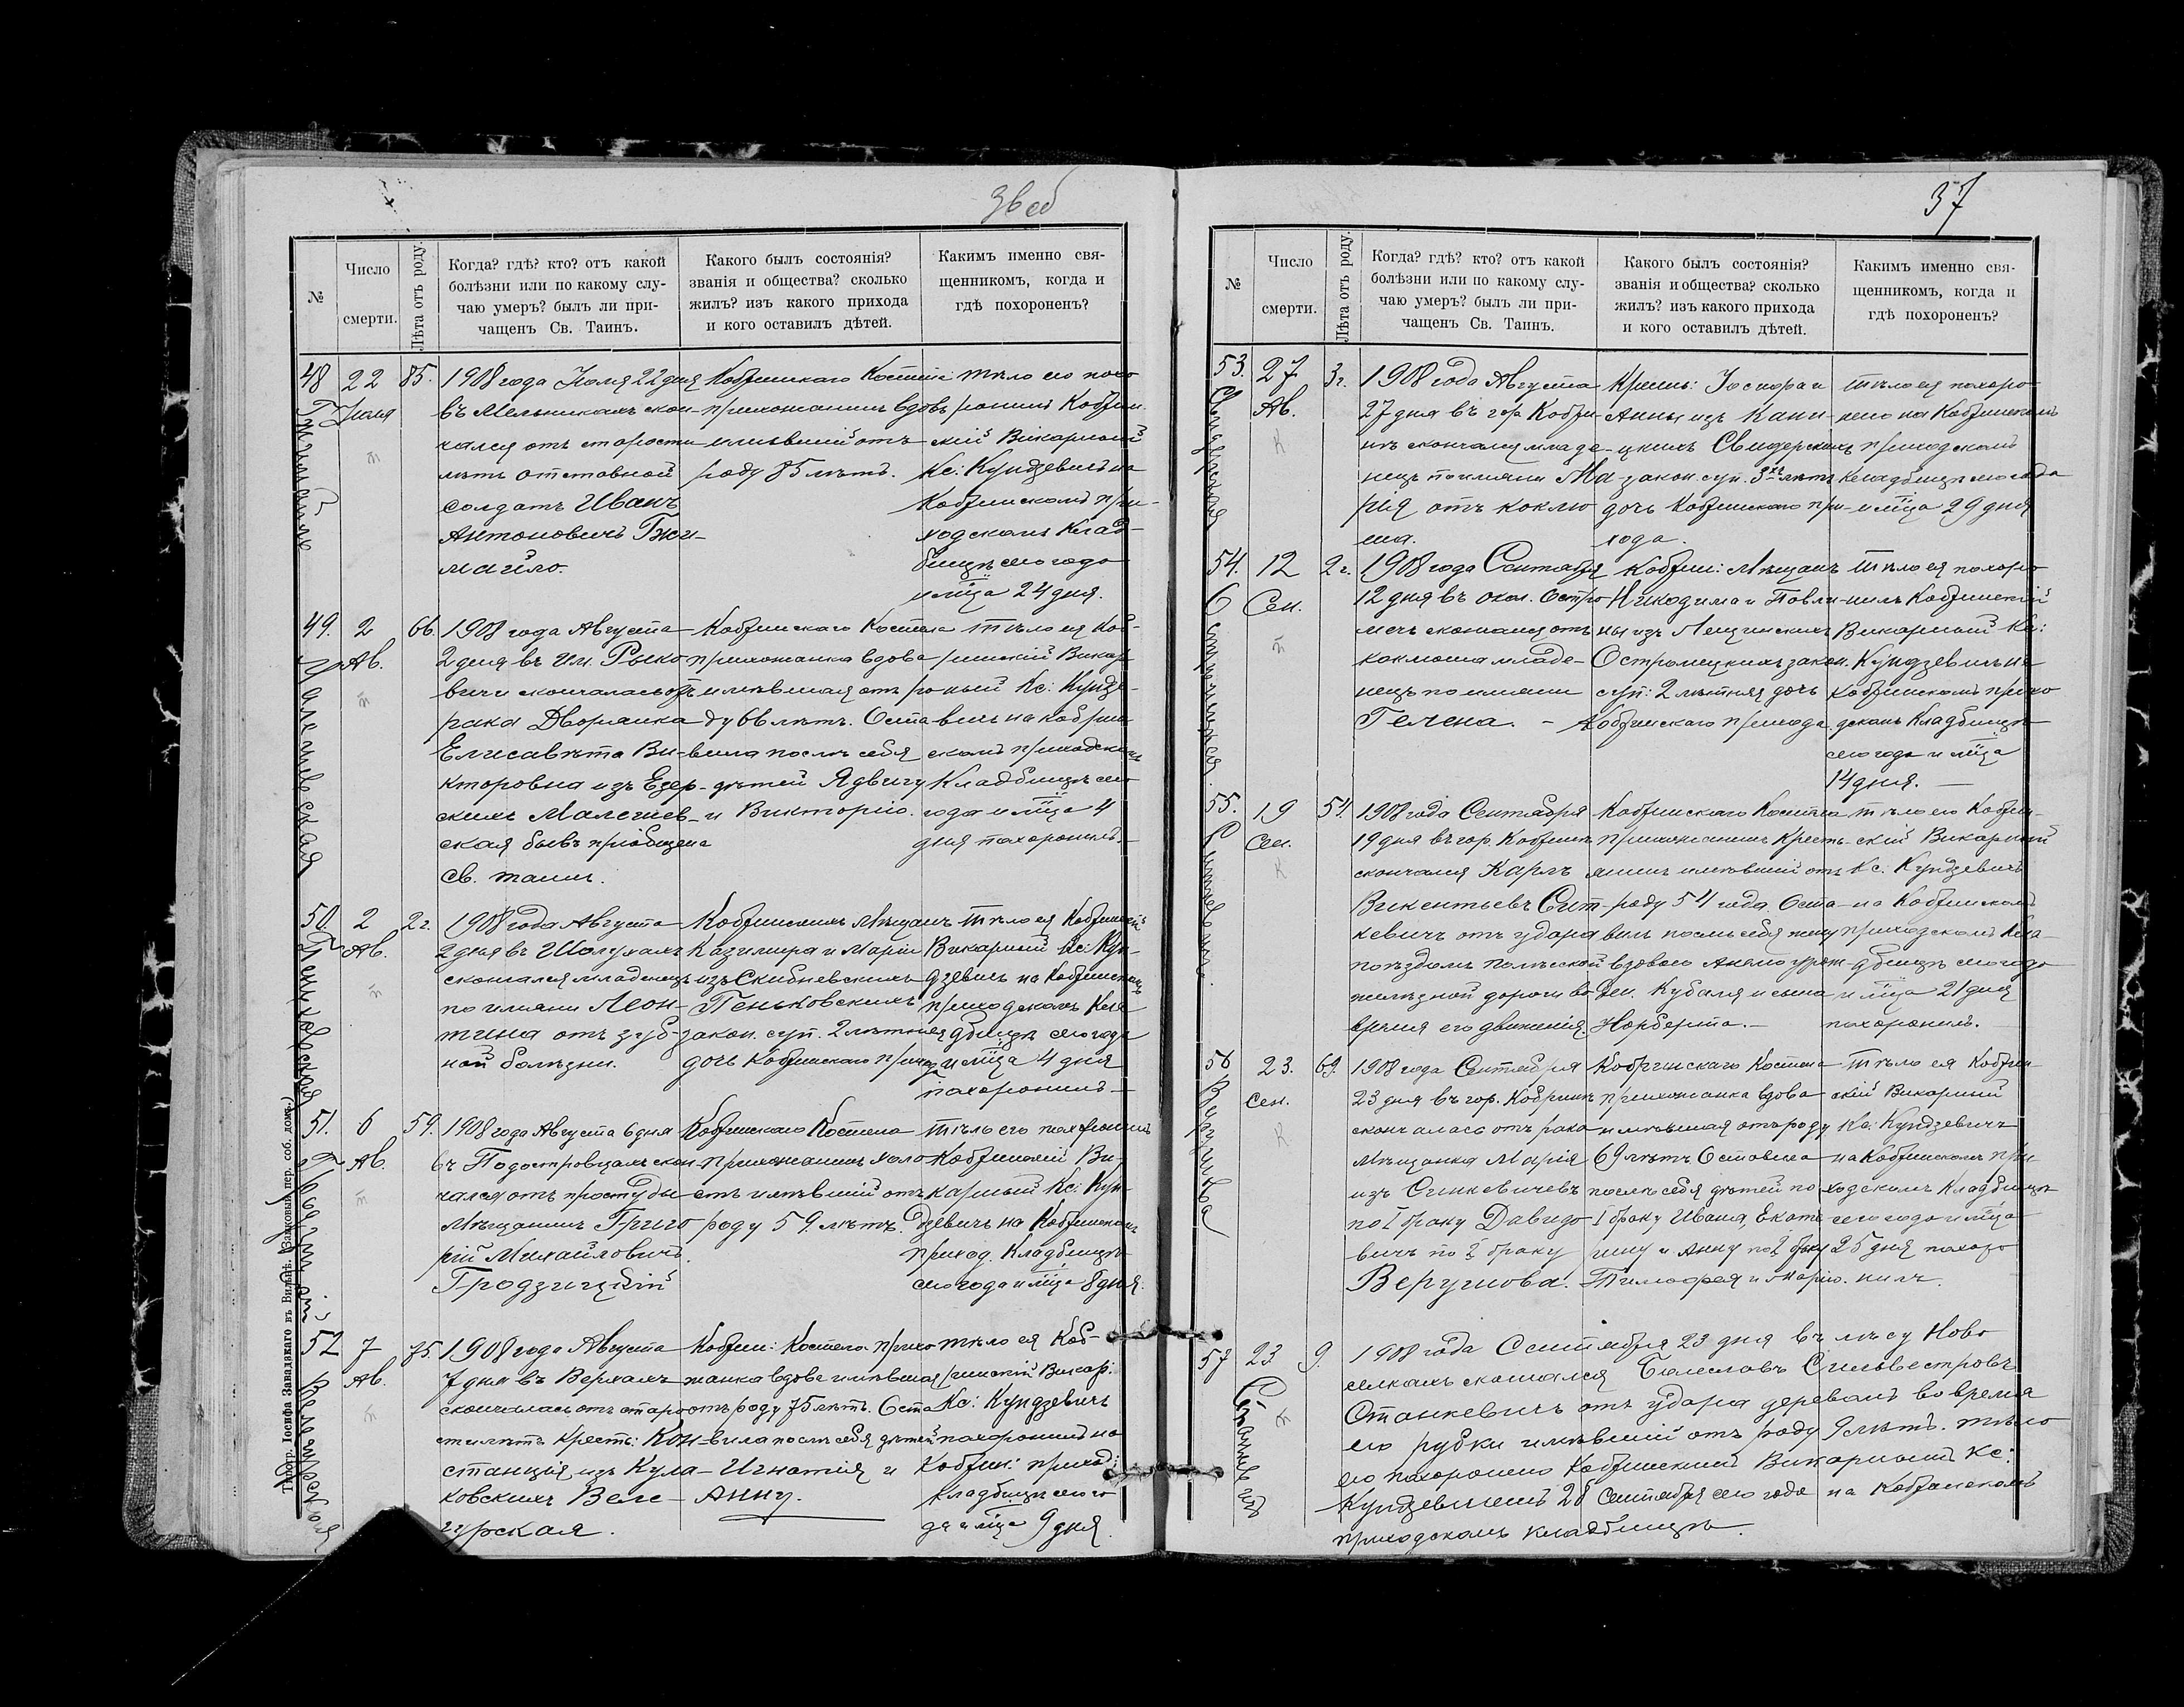 36 об
№
Число
смерти.
Лѣта отъ роду.
Когда? гдѣ? кто? отъ какой
болѣзни или по какому слу-
чаю умеръ? былъ ли при-
чащенъ Св. Таинъ.
Какого былъ состоянія?
званія и общества? сколько
жилъ? изъ какого прихода
и кого оставилъ дѣтей.
Какимъ именно свя-
щенникомъ, когда и
гдѣ похороненъ?
48
22
Іюля
85.
1908 года Іюля 22 дня
въ Мельникахъ скон-
чался отъ старости
лѣтъ отставной
солдатъ Иванъ
Антоновичъ Гжи-
майло.
Кобринскаго Костела
прихожанинъ вдовъ
имѣвшій отъ
роду 85 лѣтъ.
тѣло его похо
ронилъ Кобрин
скій Викарный
Кс: Кундзевичъ на
Кобринскомъ при-
ходскомъ Клад-
бищѣ сего года
и мѣца 24 дня.
49.
2
Ав.
66.
Малешевская
1908 года Августа
2 дня въ им. Рыко
вичи скончалась отъ
рака Дворянка
Елисавета Ви-
кторовна изъ Езер-
скихъ Малешев-
ская бывъ пріобщена
св. таинъ.
Кобринскаго Костела
прихожанка вдова
имѣвшая отъ ро
ду 66 лѣтъ. Оста
вила послѣ себя
дѣтей Ядвигу
и Викторію.
тѣло ея Коб-
ринскій Викар
ный Кс: Кундзе-
вичъ на кобрин
скомъ приходскомъ
Кладбищѣ сего
года и мѣца 4
дня похоронилъ.
50.
2
Ав.
2 г.
Геньковская
1908 года Августа
2 дня въ Шолухахъ
скончался младенецъ
по имени Леон-
тина отъ зуб-
ной болѣзни.
Кобринскихъ Мѣщанъ
Казимира и Маріи
изъ Скибневскихъ
Геньковскихъ
закон. суп. 2 лѣтняя
дочь Кобринскаго прихода
тѣло ея Кобринскій
Викарный Кс: Кун-
дзевичъ на Кобринскомъ
приходскомъ Кла
дбищѣ сего года
и мѣца 4 дня
похоронилъ
51.
6
Ав.
59.
Гродзицкій
1908 года Августа 6 дня
въ Подостровцахъ скон-
чался отъ простуды
Мѣщанинъ Григо
рій Михайловичъ
Гродзицкій
Кобринскаго Костела
прихожанинъ холо
стъ имѣвшій отъ
роду 59 лѣтъ.
тѣло его похоронилъ
Кобринскій Ви-
карный Кс: Кун-
дзевичъ на Кобринскомъ
приход. Кладбищѣ
сего года и мѣца 8 дня.
52
7
Ав.
75.
1908 года Августа
7 дня въ Верхахъ
скончалась отъ старо
сти лѣтъ Кресть: Кон-
станція изъ Кула-
ковскихъ Веле-
гурская.
Кобрин: Костела прихо
жанка вдова имѣвшая
отъ роду 75 лѣтъ. Оста
вила послѣ себя дѣтей
Игнатія и
Анну.
тѣло ея Коб-
ринскій Викар:
Кс: Кундзевичъ
похоронилъ на
Кобрин: приход:
кладбищѣ сего го
да и мѣца 9 дня.
Типогр. Іосифа Завадзкаго въ Вильнѣ.
37
№
Число
смерти.
Лѣта отъ роду.
Когда? гдѣ? кто? отъ какой
болѣзни или по какому слу-
чаю умеръ? былъ ли при-
чащенъ Св. Таинъ.
Какого былъ состоянія?
званія и общества? сколько
жилъ? изъ какого прихода
и кого оставилъ дѣтей.
Какимъ именно свя-
щенникомъ, когда и
гдѣ похороненъ?
53.
27
Ав.
3 г.
Свидерская
1908 года Августа
27 дня въ гор. Кобри-
нѣ скончался младе-
нецъ по имени Ма-
рія отъ коклю
ша.
Крест: Іосифа и
Анны изъ Кани-
цкихъ Свидерскихъ
закон. суп. 3хъ лѣтъ
дочь Кобринскаго при-
хода.
тѣло ея похоро-
нено на Кобринскомъ
приходскомъ
кладбищѣ сего года
и мѣца 29 дня
54.
12
Сен.
2 г.
1908 года Сентября
12 дня въ окол. Остро
мечъ скончался отъ
коклюша младе-
нецъ по имени
Гелена.
Кобрин: Мѣщанъ
Никодима и Павли-
ны изъ Лещинскихъ
Остромецкихъ закон.
суп: 2 лѣтняя дочь
Кобринскаго прихода.
тѣло ея похоро
нилъ Кобринскій
Викарный Кс:
Кундзевичъ на
Кобринскомъ прихо
дскомъ Кладбищѣ
сего года и мѣца
14 дня.
55.
19
Сен.
54.
1908 года Сентября
19 дня въ гор. Кобринѣ
скончался Карлъ
Викентьевъ Сит-
кевичъ отъ удара
поѣздомъ Полѣсской
желѣзной дороги во
время его движенія.
Кобринскаго Костела
прихожанинъ Кресть-
янинъ имѣвшій отъ
роду 54 года. Оста-
вилъ послѣ себя жену
вдовою Анелю урож-
ден. Кубаля и сына
Норберта.
тѣло его Кобрин-
скій Викарный
Кс. Кундзевичъ
на Кобринскомъ
приходскомъ Кла-
дбищѣ сего года
и мѣца 21 дня
похоронилъ.
56
23.
Сен.
69.
1908 года Сентября
23 дня въ гор. Кобринѣ
скончалась отъ рака
Мѣщанка Марія
изъ Сынкевичевъ
по I браку Давидо-
вичъ по 2 браку
Веругиова.
Кобринскаго Костела
прихожанка вдова
имѣвшая отъ роду
69 лѣтъ. Оставила
послѣ себя дѣтей по
I браку Ивана, Екате
рину и Анну по 2 браку
Тимофея и Марію.
тѣло ея Кобрин-
скій Викарный
Кс: Кундзевичъ
на Кобринскомъ при-
ходскомъ Кладбищѣ
сего года и мѣца
25 дня похоро
нилъ.
57
23
9.
Станкевичъ
1908 года Сентября 23 дня въ лѣсу Ново
селкахъ скончался Болеславъ Сильвестровъ
Станкевичъ отъ удара деревомъ во время
его рубки имѣвшій отъ роду 9 лѣтъ. тѣло
его похоронено Кобринскимъ Викарнымъ Кс:
Кундзевичемъ 28 Сентября сего года на Кобринскомъ
приходскомъ кладбищѣ.